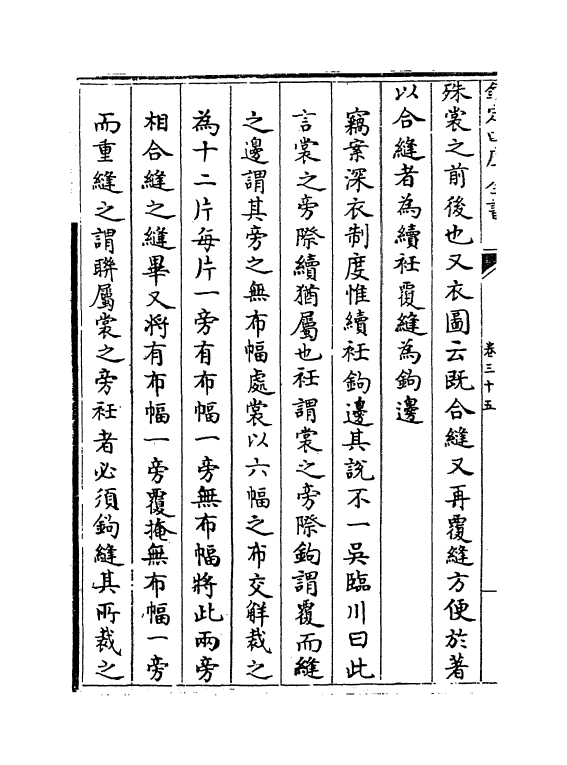 欽定四庫全書
卷三十五
殊裳之前後也又衣圖云既合縫又再覆縫方便於著
以合縫者為續衽覆縫為鉤邊
竊案深衣制度惟續衽鉤邊其説不一吳臨川曰此
言裳之旁際續猶屬也衽謂裳之旁際鉤謂覆而縫
之邊謂其旁之無布幅處裳以六幅之布交解裁之
為十二片每片一旁有布幅一旁無布幅將此兩旁
相合縫之縫畢又將有布幅一旁覆掩無布幅一旁
而重縫之謂聯屬裳之旁衽者必須鉤縫其所裁之